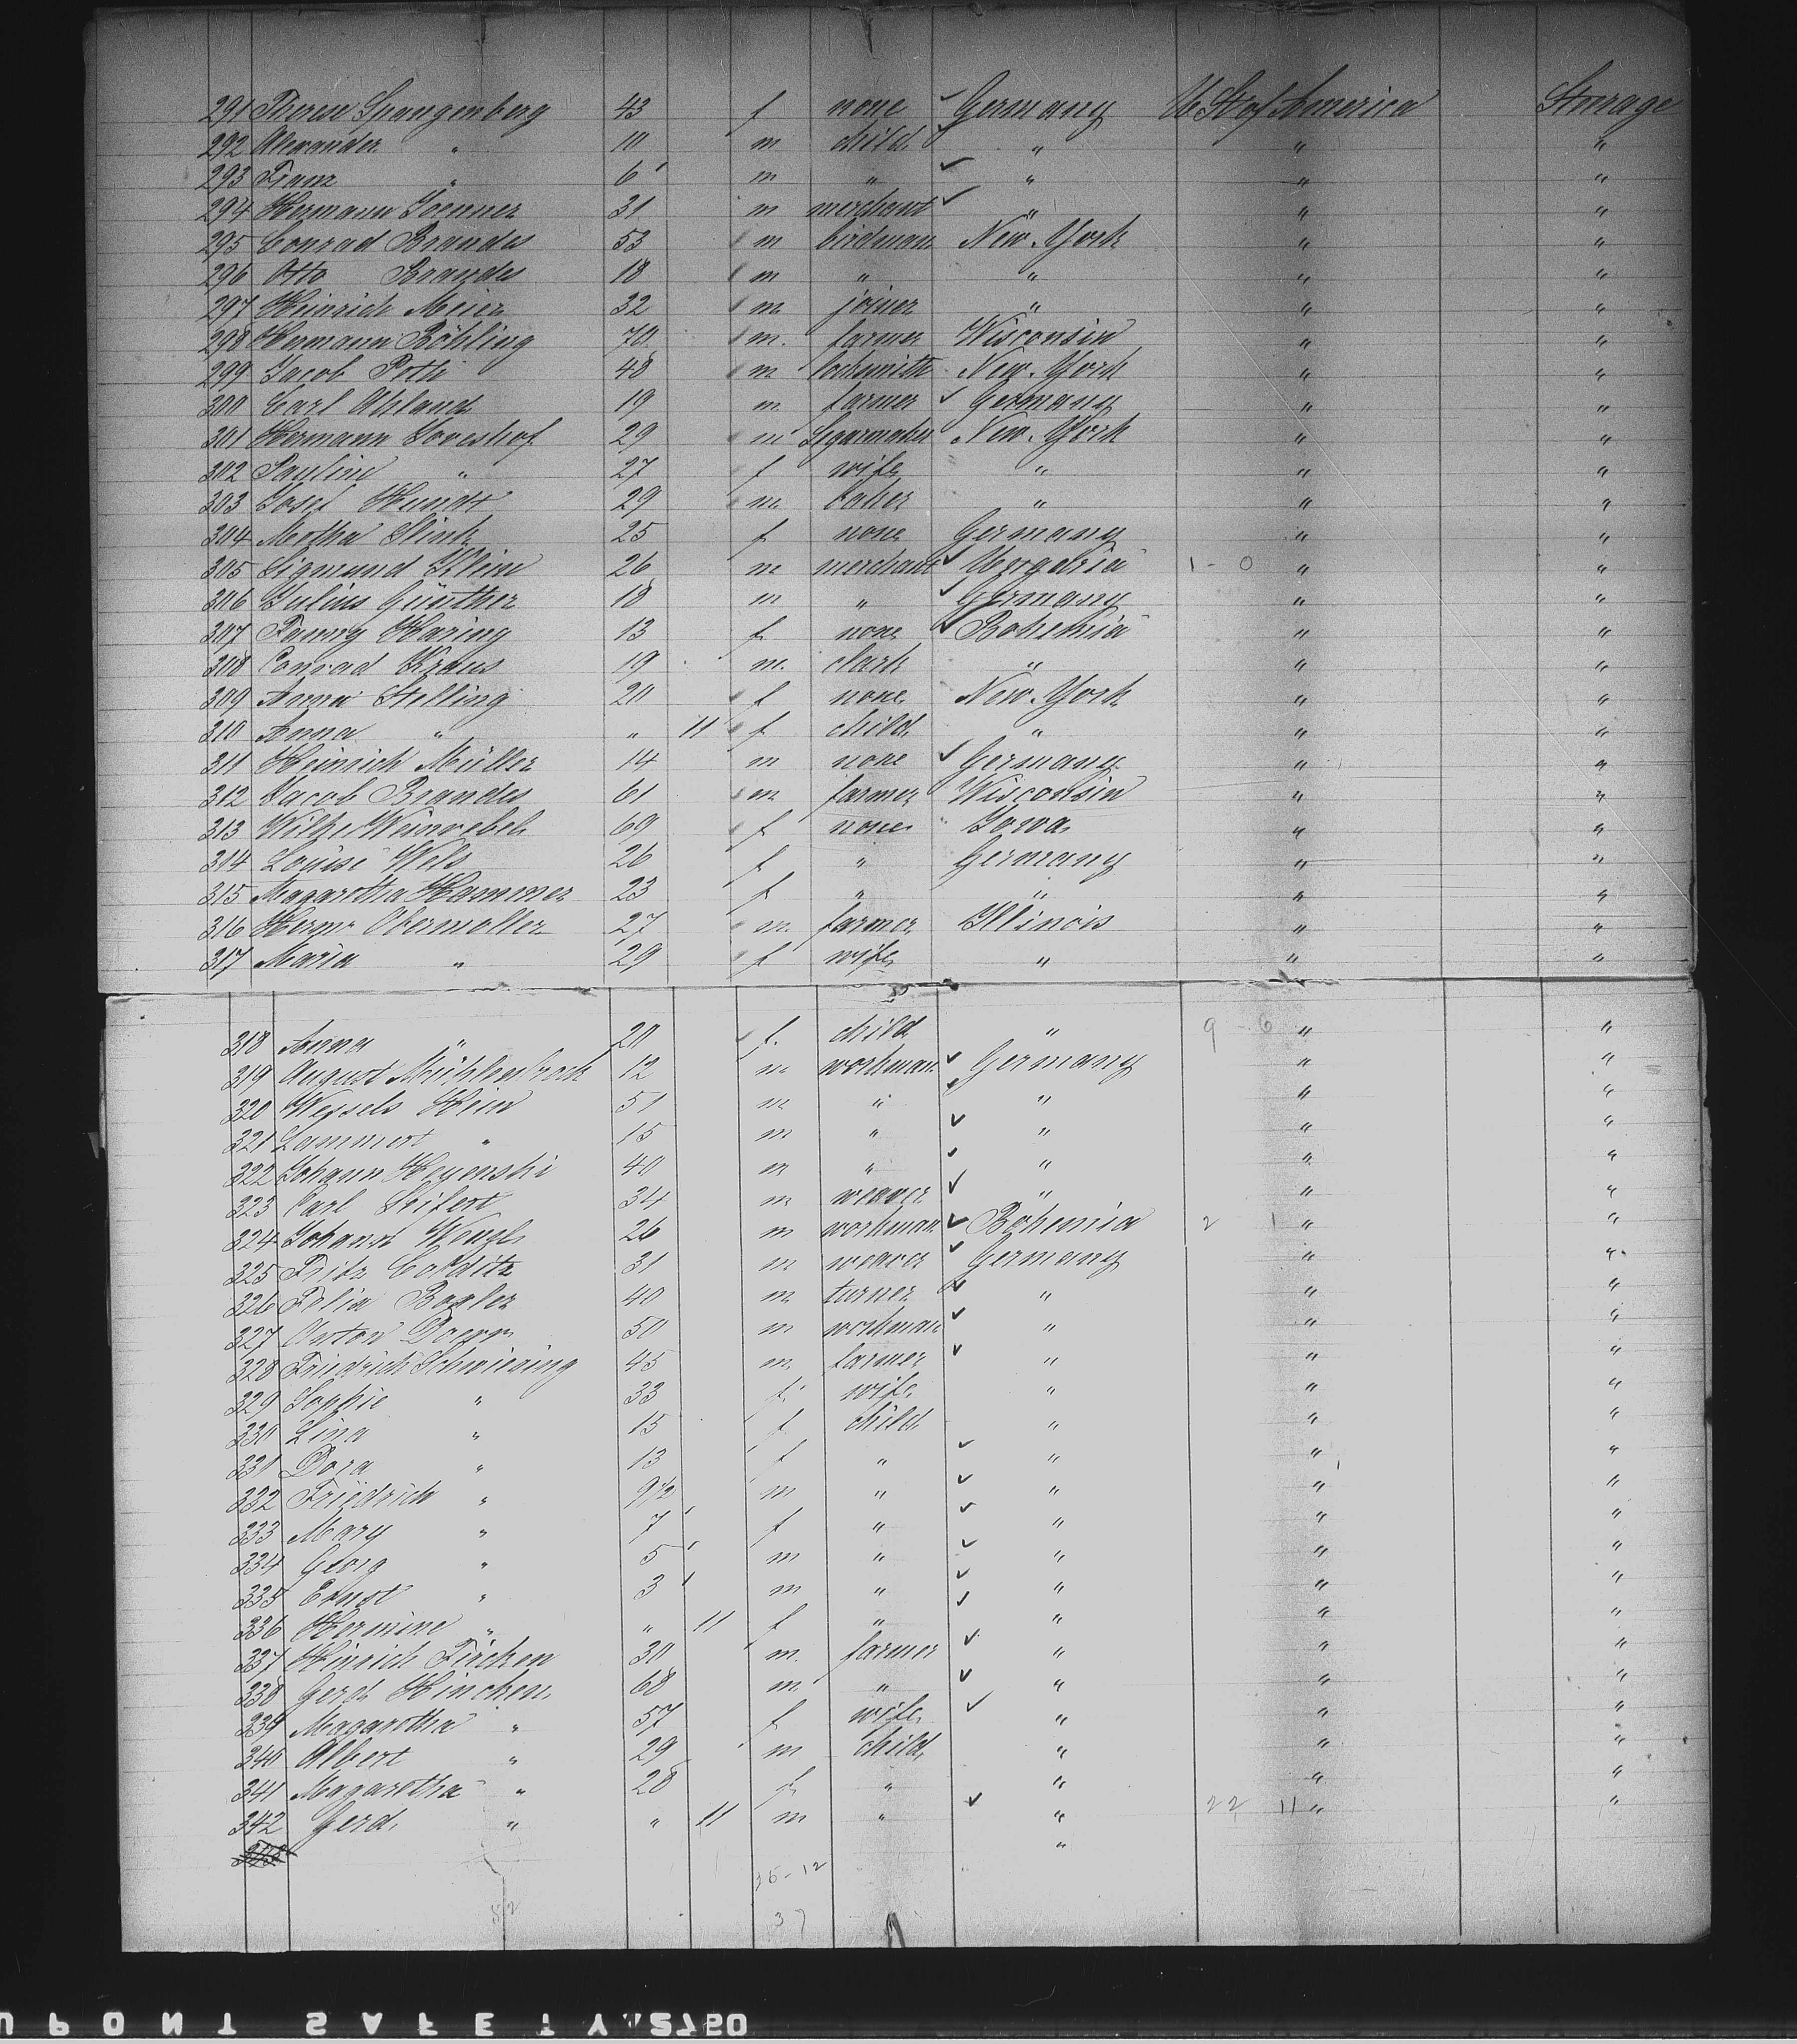 291 Therese Spangenberg 43 f none Germany U St of America Steerage
292 Alexander " 10 m child " " "
293 Franz " 6 m " " " "
294 Hermann 31 m merchant " " "
295 Conrad Brandes 53 m birdman New York " "
296 Otto Brandes 18 m " " " "
297 Heinrich Meier 32 m joiner " " "
298 Hermann Böhling 70 m farmer Wisconsin " "
299 Jacob Poth 48 m locksmith New York " "
300 Carl Ahland 19 m farmer Germany " "
301 Hermann 29 m Segarmaker New York " "
302 Pauline " 27 f wife " " "
303 Josef Hundt 29 m baker " " "
304 Metha 25 f none Germany " "
305 Sigmund Klein 26 m merchant Ungaria 1 - 0 " "
306 Julius Günther 18 m " Germany " "
307 Fanny Haring 13 f none Bohemia " "
308 Conrad Kraus 19 m clark " " "
309 Anna Stelling 20 f none New York " "
310 Anna " " 11 f child " " "
311 Heinrich Müller 14 m none Germany " "
312 Jacob Brandes 61 m farmer Wisconsin " "
313 69 f none Iowa " "
314 Louise Wels 26 f " Germany " "
315 Magaretha Hammer 23 f " " " "
316 Herm. Obermoller 27 m farmer Illinois " "
317 Maria " 29 f wife " " "
318 Anna " 20 f child " 9 - 6 " "
319 August Mühlenbrock 12 m workman Germany " "
320 Wessels Hein 51 m " " " "
321 Lammert " 15 m " " " "
322 Johann Heyenski 40 m " " " "
323 Carl Seifert 34 m weaver " " "
324 Johann Wenzl 26 m workman Bohemia 2 1 " "
325 Fritz Colditz 31 m weaver Germany " "
326 40 m turner " " "
327 Anton 50 m workman " " "
328 Friedrich Schwiering 45 m farmer " " "
329 Sophie " 33 f wife " " "
330 Lina " 15 f child " " "
331 Dora " 13 f " " " "
332 Friedrich " 9 1/2 m " " " "
333 Mary " 7 f " " " "
334 Georg " 5 m " " " "
335 Ernst " 3 m " " " "
336 Hermine " " 11 f " " " "
337 Hinrich Fircken 30 m farmer " " "
338 Gerd Hincken 68 m " " " "
339 Magaretha " 57 f wife " " "
340 Albert " 29 m child " " "
341 Magaretha " 28 f " " " "
342 Gerd " " 11 m " " 22 11 " "
"
25 - 12
52 37
DUPONT SAFETY